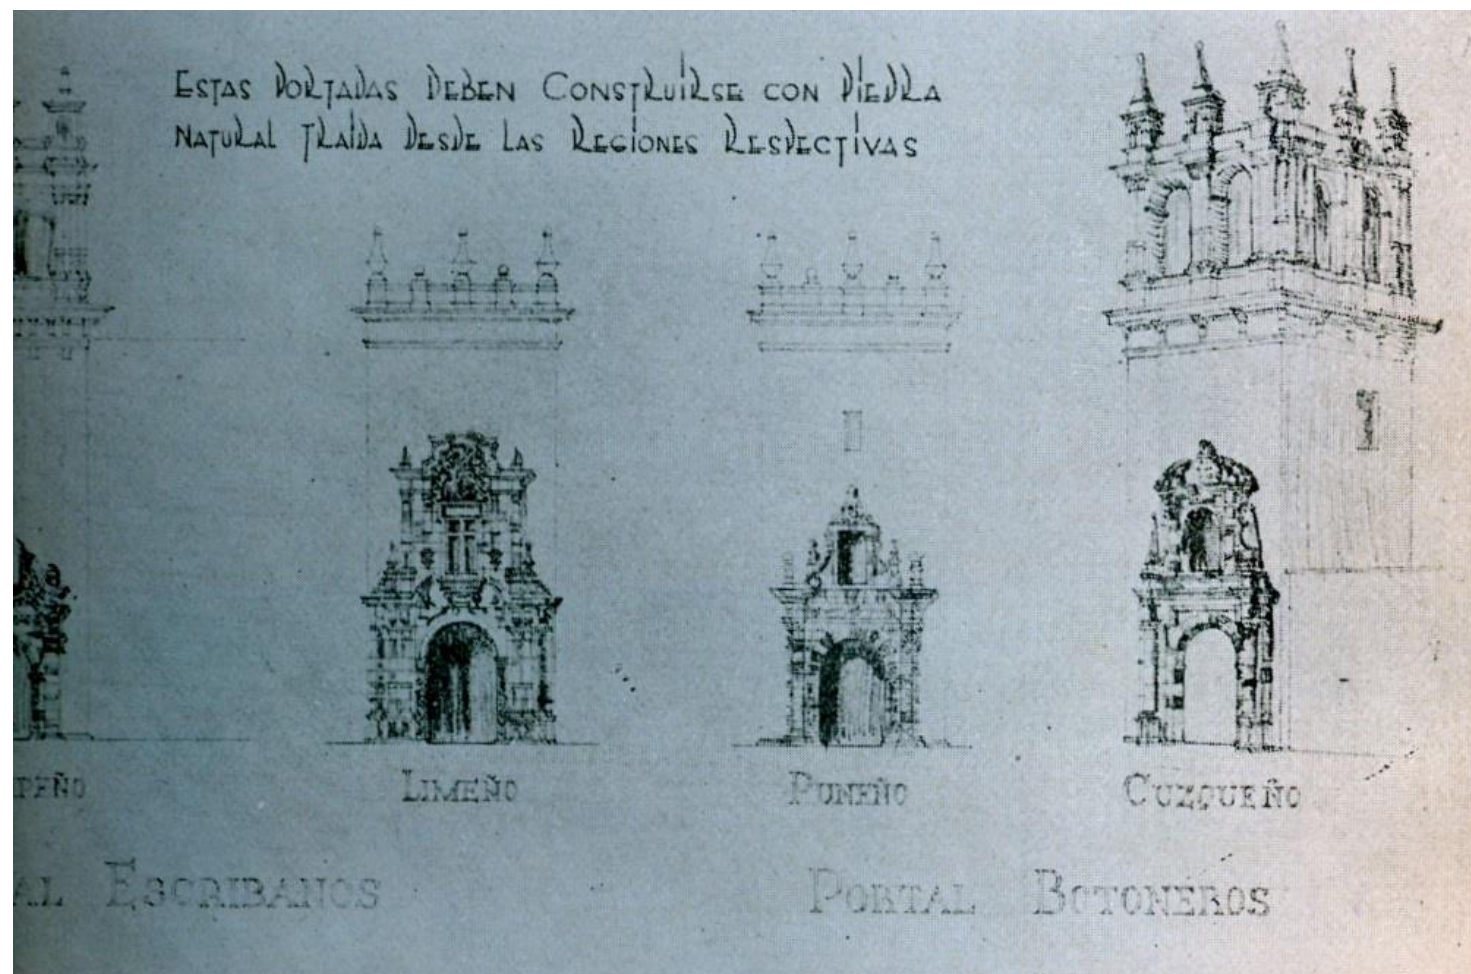 ESTAS PORTADAS DEBEN CONSTRUÍRSE CON PIEDRA
NATURAL TRAÍDA DESDE LAS REGIONES RESPECTIVAS
PEÑO LIMEÑO PUNEÑO CUZQUEÑO
AL ESCRIBANOS PORTAL BOTONEROS